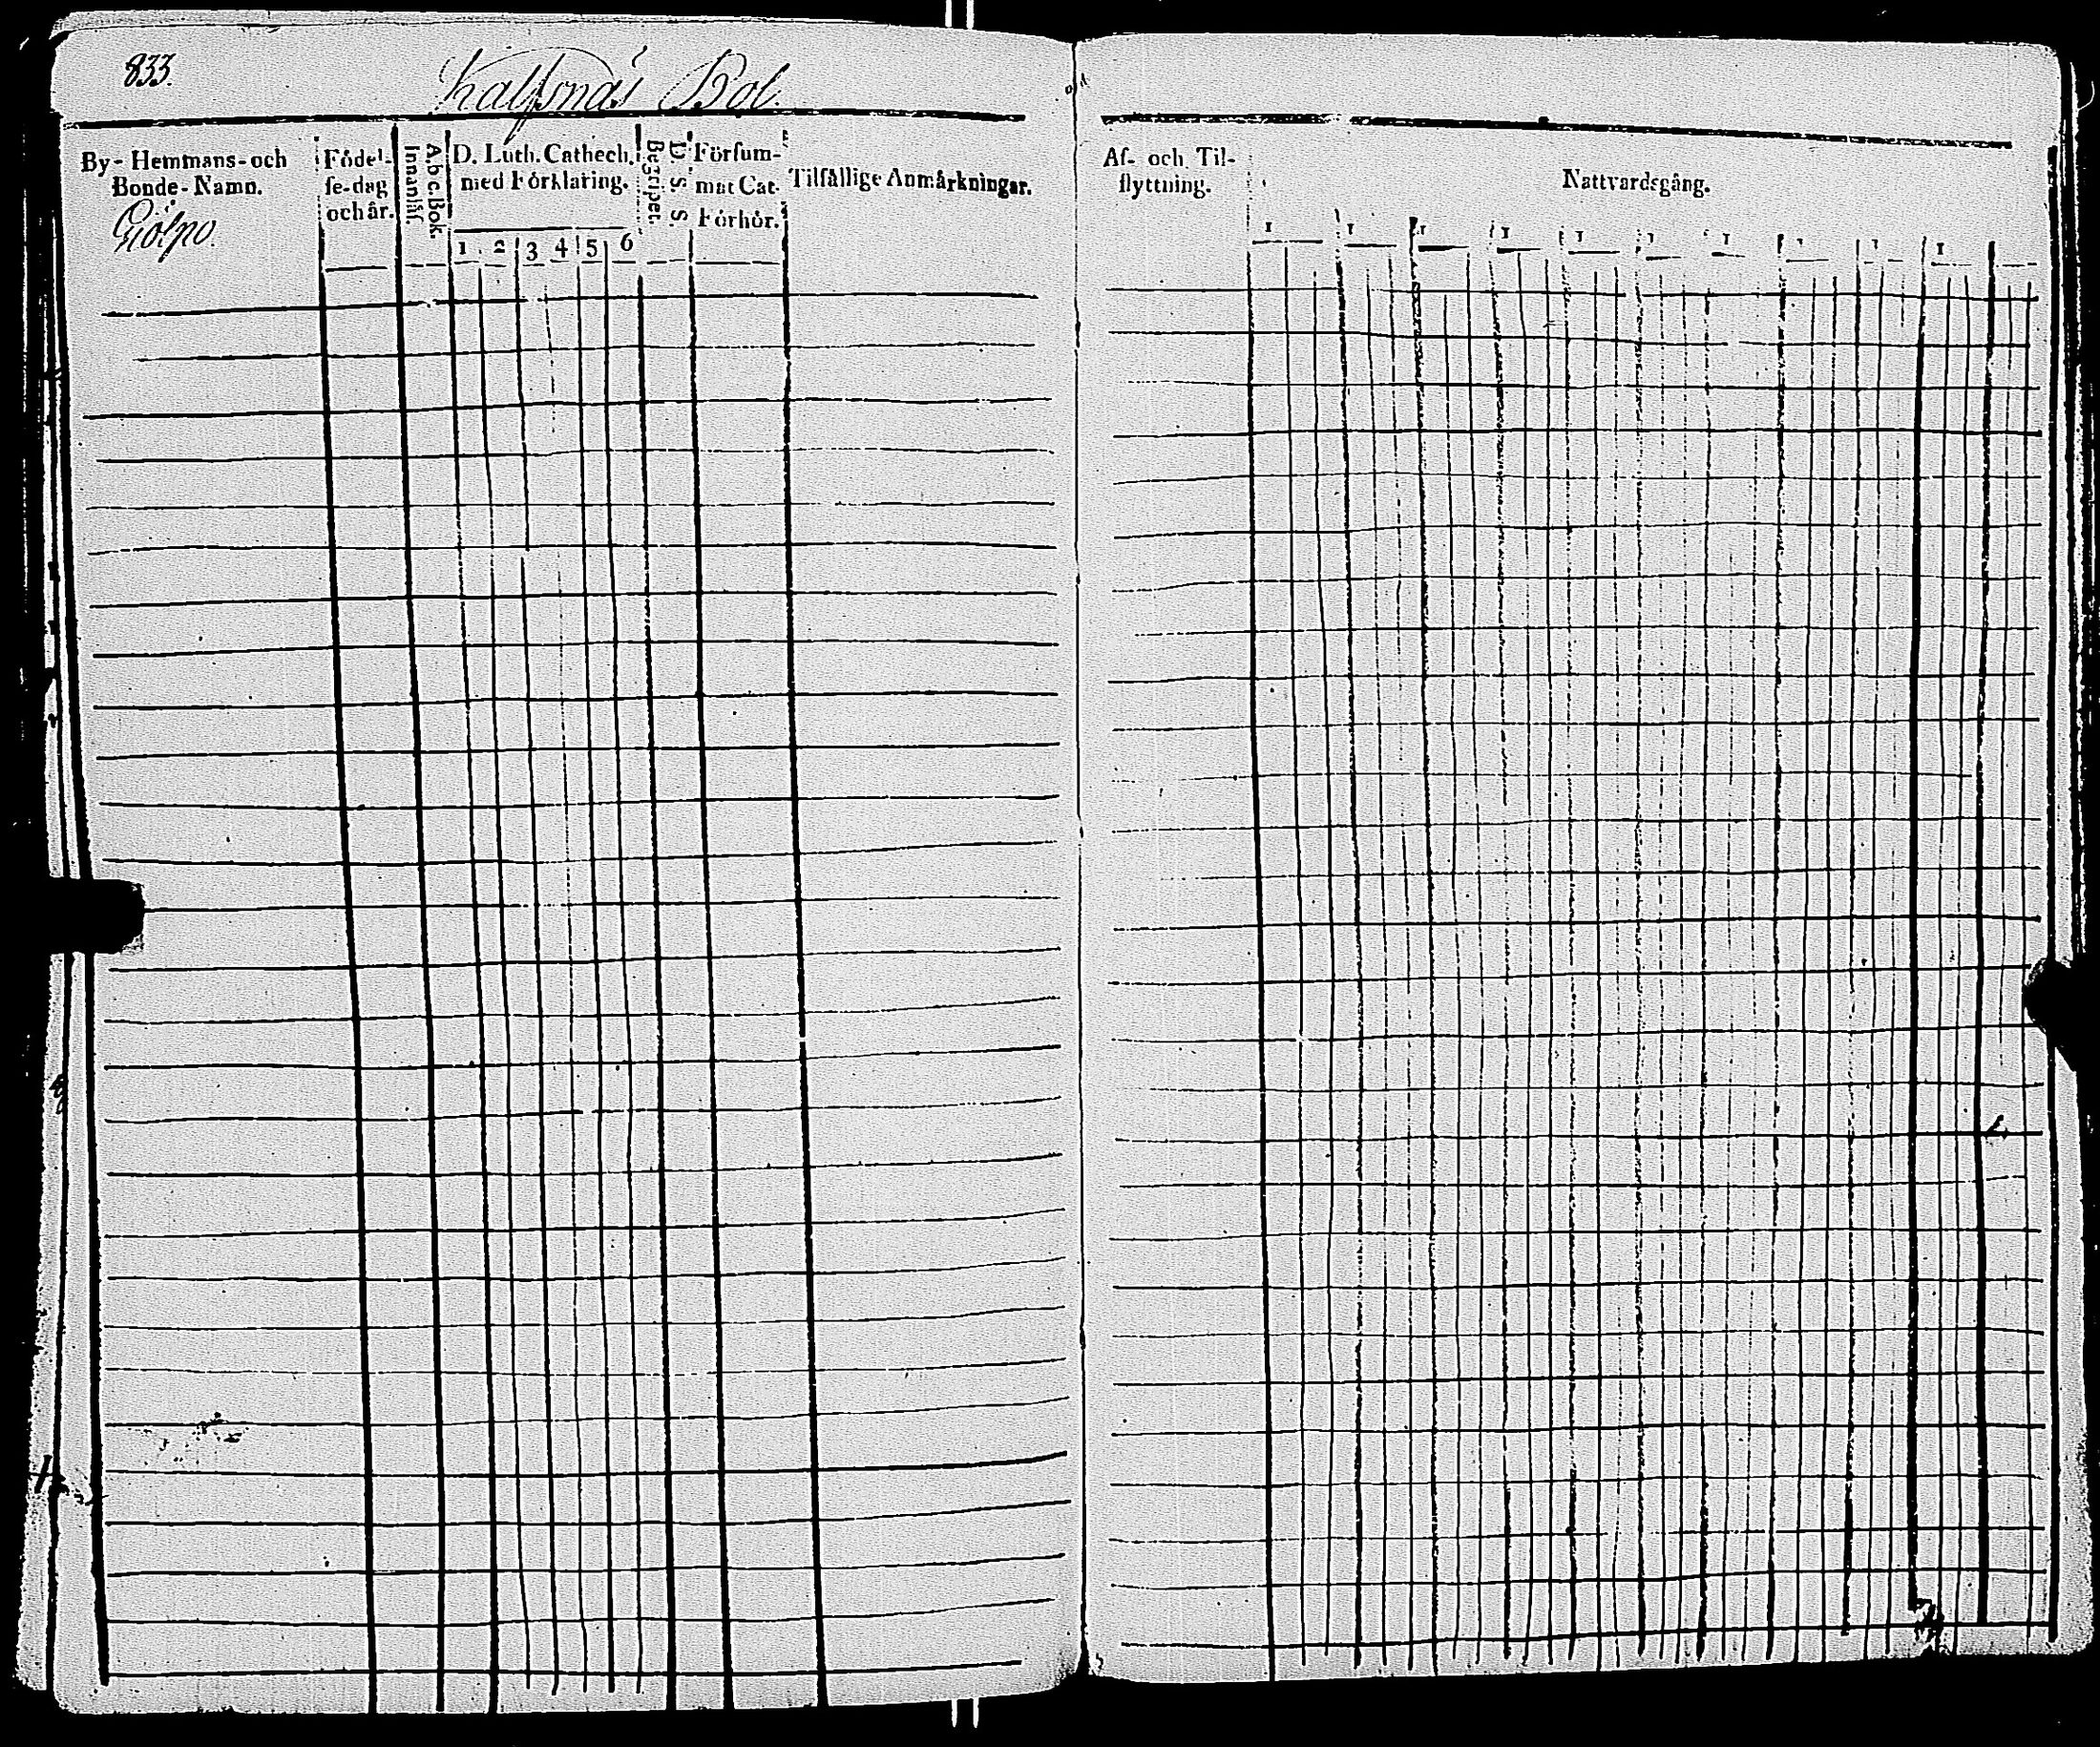 833.
Kalfsnäs Bol.
By- Hemmans- och
Bonde- Namn.
Giölpo
Födel-
se-dag
och år.
A.b.c. Bok.
Innanläs.
D. Luth. Cathech.
med Förklaring.
1 2 3 4 5 6
Begripet.
D. S. S.
Försum-
mat Cat.
Förhör.
Tilfällige Anmärkningar.
Af- och Til-
flyttning.
Nattvardsgång.
1 1 1 1 1 1 1 1 1 1